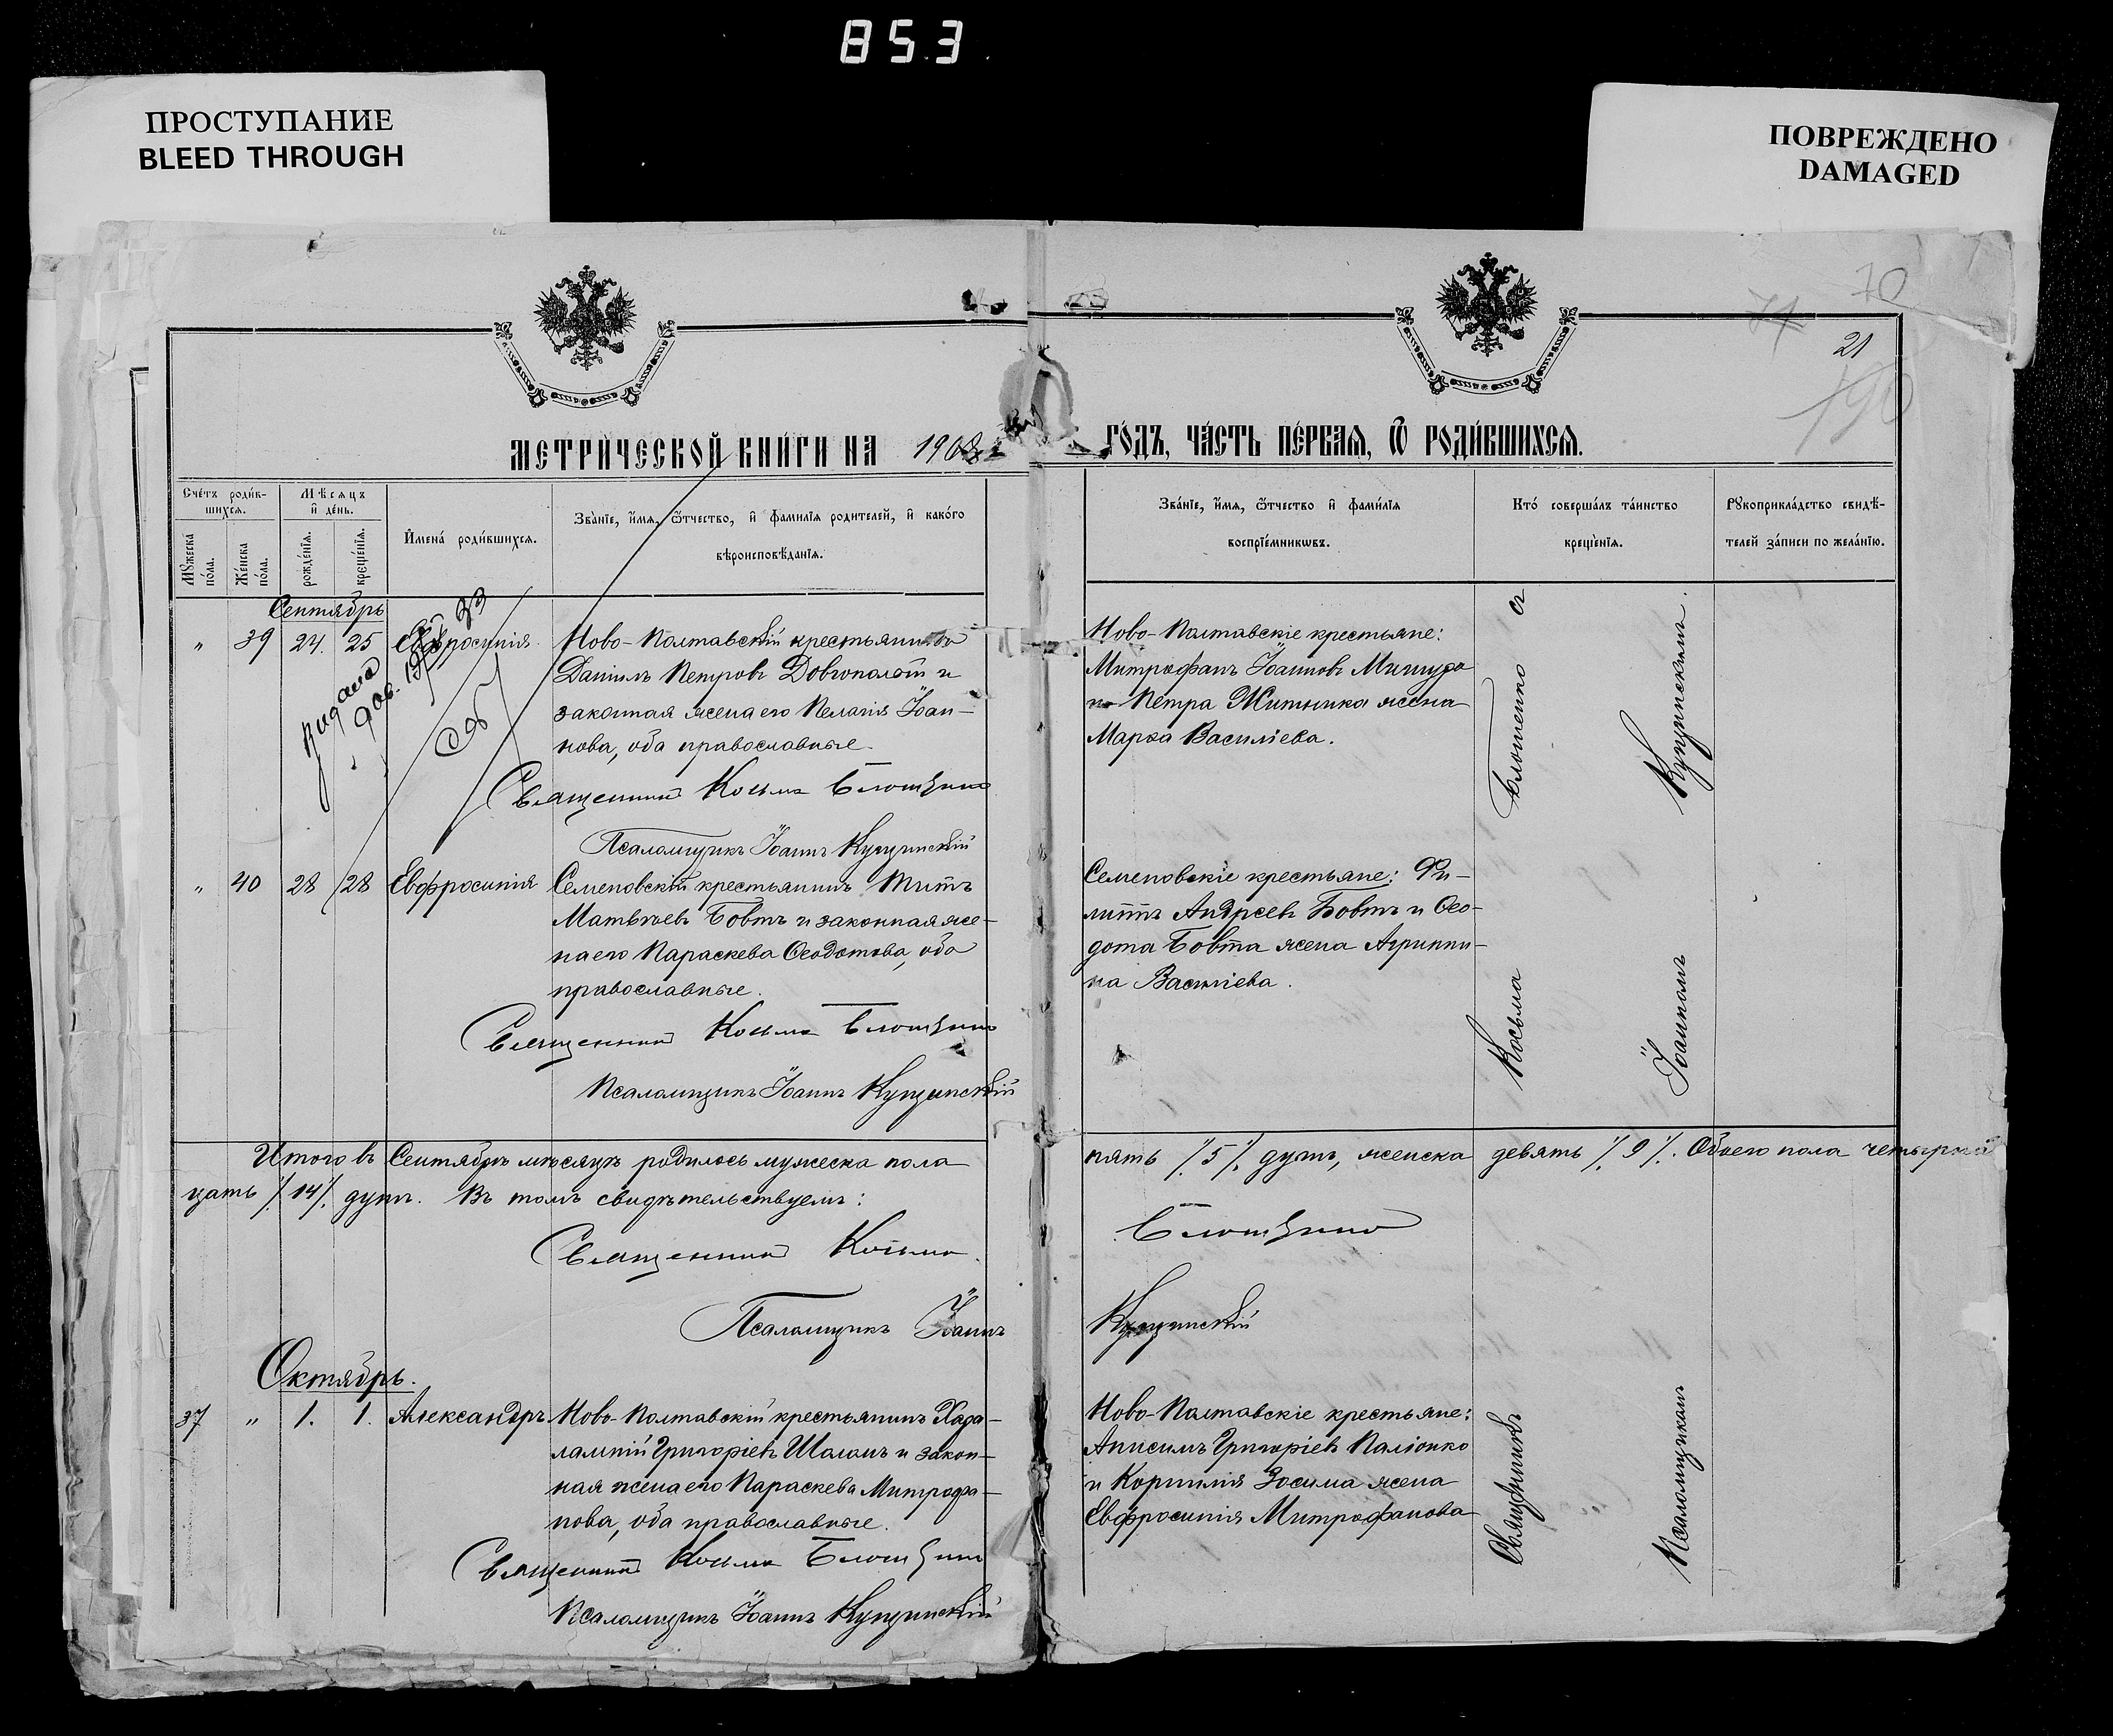 853
ПРОСТУПАНИЕ
BLEED THROUGH
ПОВРЕЖДЕНО
DAMAGED
70
74
21
190
МЕТРИЧЕСКОЙ КНИГИ НА 1908
ГОДЪ, ЧАСТЬ ПЕРВАЯ, Ѿ РОДИВШИХСЯ.
Счетъ родив-
шихся.
Мужеска
пола.
Женска
пола.
Мѣсяцъ
и день.
рожденія.
крещенія.
Имена родившихся.
Званіе, имя, ѿтчество, и фамилія родителей, и какого
вѣроисповѣданія.
Званіе, имя, ѿтчество и фамилія
воспріемникѡвъ.
Кто совершалъ таинство
крещенія.
Рукоприкладство свидѣ-
телей записи по желанію.
Сентябрь
" 39 24. 25 Евфросинія.
Ново-Полтавскій крестьянинъ
Даніилъ Петровъ Довгополый и
законная жена его Пелагія Іоан-
нова, оба православные.
Священникъ Косьма
Псаломщикъ Іоаннъ
Ново-Полтавскіе крестьяне:
Митрофанъ Іоанновъ
и Петра Житника жена
Марѳа Васильева.
" 40 28 28 Евфросинія
Семеновскій крестьянинъ Титъ
Матвѣевъ Бовтъ и законная же-
на его Параскева Ѳеодотова, оба
православные.
Священникъ Косьма
Псаломщикъ Іоаннъ
Семеновскіе крестьяне: Фи-
липпъ Андреевъ Бовтъ и Ѳео-
дота Бовта жена Агриппи-
на Васильева.
Итого въ Сентябрѣ мѣсяцѣ родилось мужеска пола
пять /5/ душъ, женска девять /9/. Обоего пола четырнад
цать /14/ душъ. Въ томъ свидѣтельствуемъ:
Священникъ Косьма
Псаломщикъ Іоаннъ
Октябрь.
37 " 1. 1. Александръ
Ново-Полтавскій крестьянинъ Хара-
лампій Григоріевъ Шаламъ и закон-
ная жена его Параскева Митрофа-
нова, оба православные.
Священникъ Косьма
Псаломщикъ Іоаннъ
Ново-Полтавскіе крестьяне:
Анисимъ Григоріевъ Паліонко
и Корнилія Зосима жена
Евфросинія Митрофанова
Священникъ
Косьма
съ
Псаломщикомъ
Іоанномъ